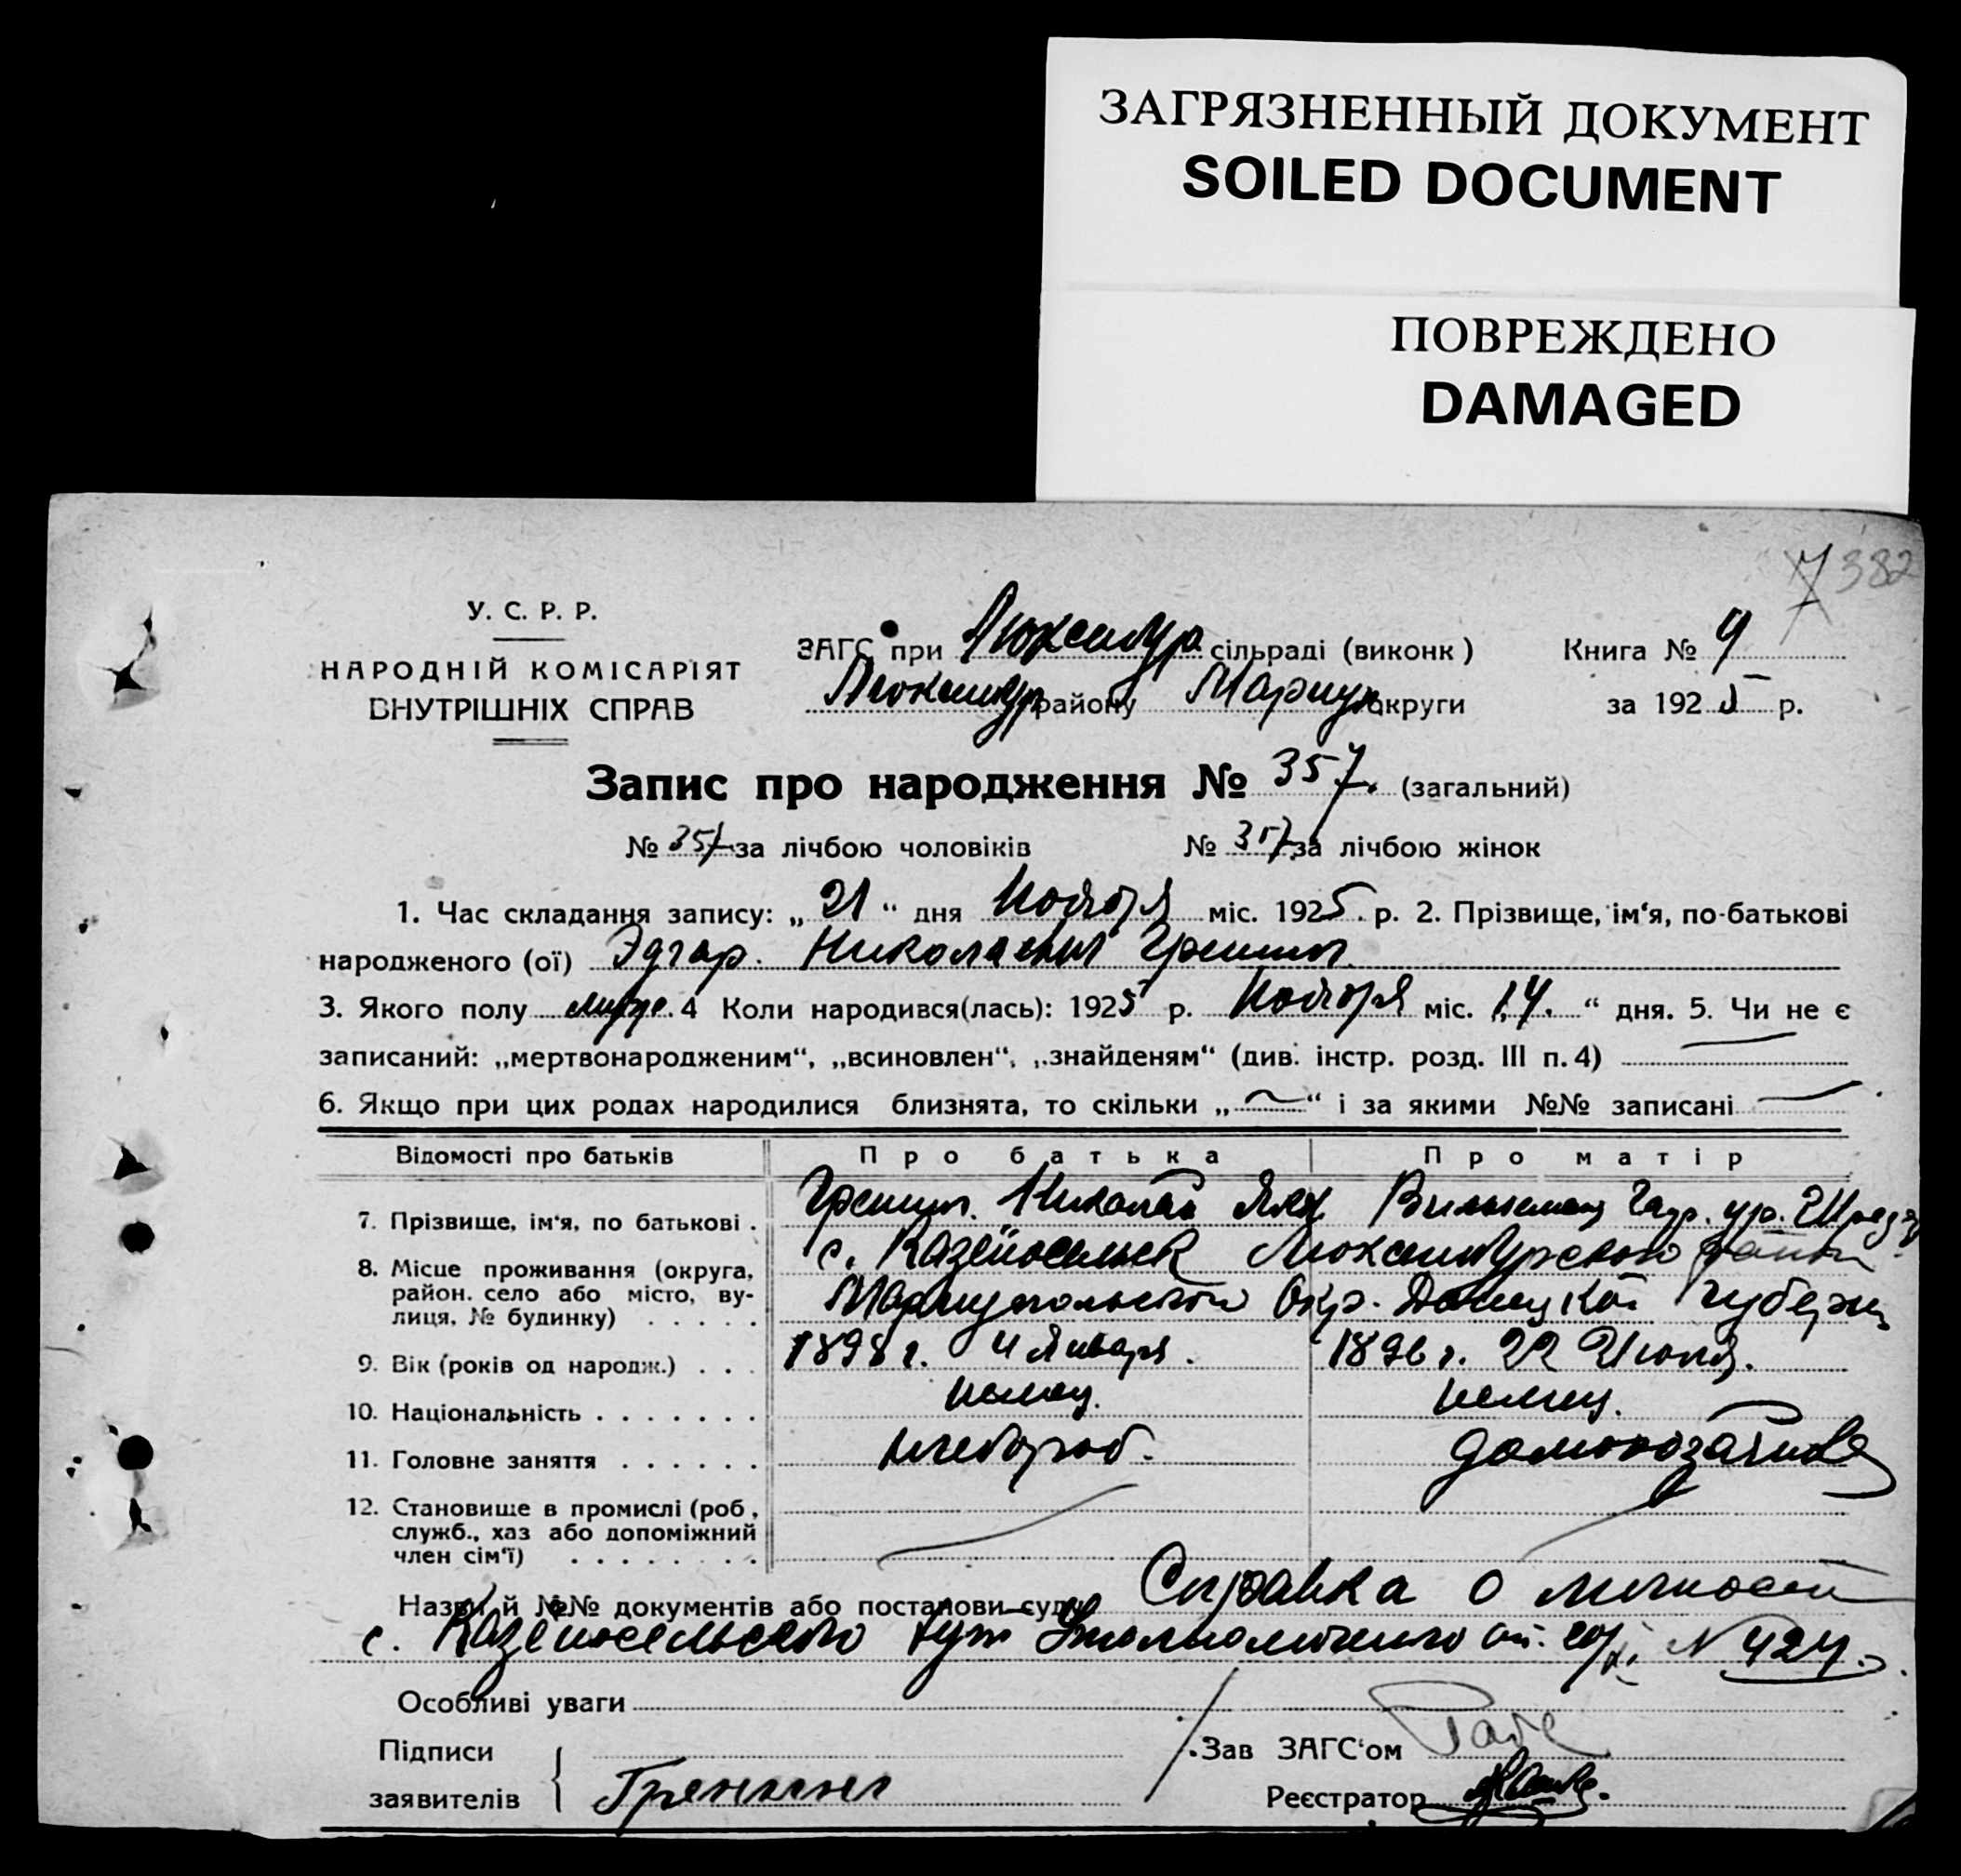 ЗАГРЯЗНЕННЫЙ ДОКУМЕНТ
SOILED DOCUMENT
ПОВРЕЖДЕНО
DAMAGED
382
У. С. Р. Р.
НАРОДНІЙ КОМІСАРІЯТ
ВНУТРІШНІХ СПРАВ
ЗАГС при Люксембур сільраді (виконк)
Люксембур району Мариуп округи
Книга №
за 1925 р.
Запис про народження № 357. (загальний)
№ 357 за лічбою чоловіків № 357 за лічбою жінок
1. Час складання запису: „21“ дня Ноября міс. 1925. р. 2. Прізвище, ім‘я, по-батькові
народженого (ої) Эдгар. Николаевич
3. Якого полу 4 Коли народився(лась): 1925 р. Ноября міс. „14.“ дня. 5. Чи не є
записаний: „мертвонародженим“, „всиновлен“, „знайденям“ (див. інстр. розд. III п. 4) —
6. Якщо при цих родах народилися близнята, то скільки „—“ і за якими №№ записані —
Відомості про батьків Про батька Про матір
7. Прізвище, ім‘я, по батькові . Николай Яков
8. Місце проживання (округа, район. село або місто, вулиця, № будинку) с. Люксембургского района
Мариупольской Окр. Донецкой губерн
9. Вік (років од народж.) . . . 1898 г. 4 Января. 1896 г. 22 Июля.
10. Національність . . . . . . . немец. немец.
11. Головне заняття . . . . . . хлебороб. домохозяйка
12. Становище в промислі (роб, служб., хаз або допоміжний член сім‘ї) . . . . . . . .
Назви й №№ документів або постанови суду Справка о личности
с. Уполномоченного от 20/XI № 424.
Особливі уваги
Підписи
заявителів
Зав ЗАГС‘ом
Реєстратор